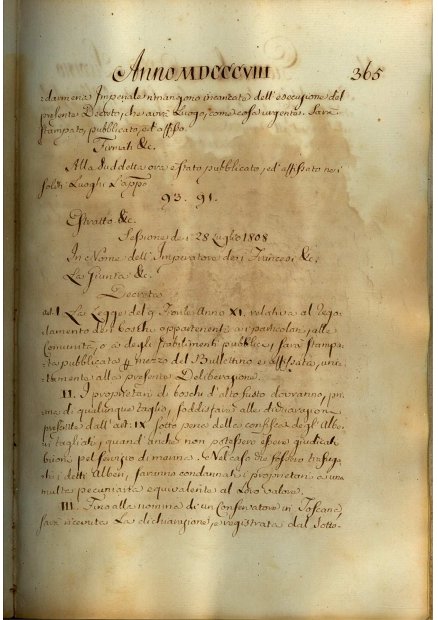 Anno MDCCCVIII 365
:darmeria Imperiale rimangono incaricate dell'esecuzione del
presente Decreto, che avrà Luogo, come cosa urgente. Sarà
stampato, pubblicato, ed affisso.
Firmati &c.
Alla suddetta ora è stato pubblicato, ed affissato nei
soliti Luoghi L'app.º
93. 91.
Estratto &c.
Sessione de i 28 Luglio 1808
In Nome dell'Imperatore de i Francesi &c.
La Giunta &c.
Decreta
Art. I. La Legge del 9 Fiorile Anno XI. relativa al Rego-
lamento dei boschi appartenenti a i particolari, alle
Comunità, o a degli stabilimenti pubblici, sarà stampa-
ta, pubblicata p mezzo del Bullettino e affissata, uni-
tamente alla presente Deliberazione.
II. I proprietari di boschi d'alto fusto dovranno, pri-
ma di qualunque taglio, soddisfare alle dichiarazioni
prescritte dall'art. IX sotto pena della confisca degli Albe-
ri tagliati, quand'anche non potessero essere giudicati
buoni pel servizio di marina. Nel caso che fossero trafuga-
ti i detti Alberi, saranno condannati i proprietari a una
multa pecuniaria equivalente al Loro valore.
III. Fino alla nomina di un Conservatore in Toscana,
sarà ricevuta La dichiarazione, e registrata dal Sotto-